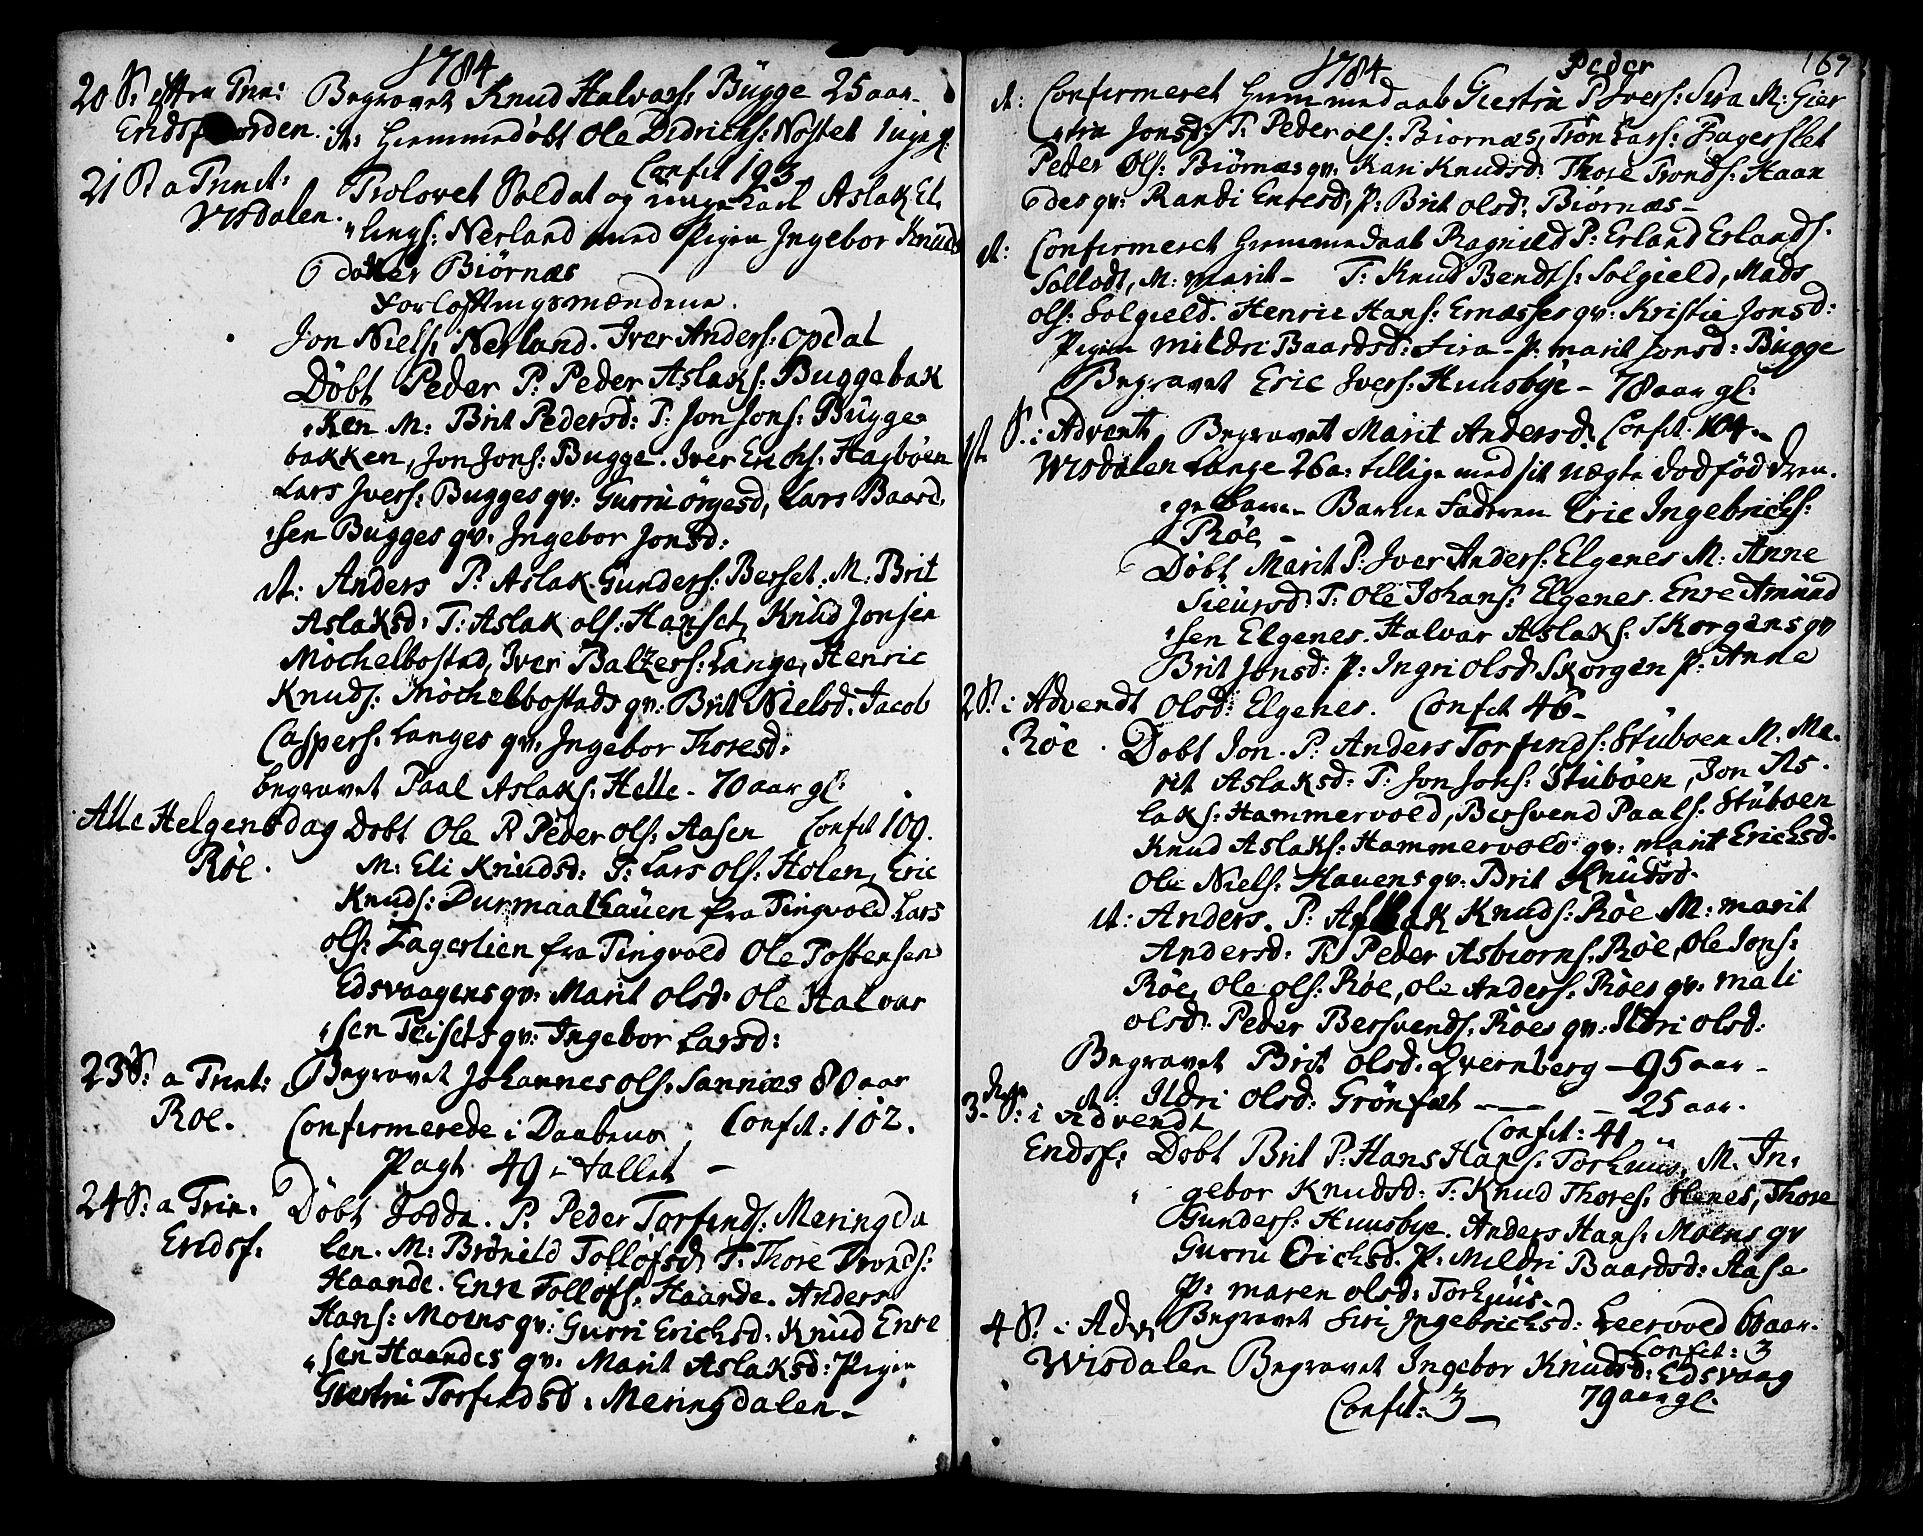 1784
20 S: efter Trin: Begravet Knud Halvars: Bügge 25 aar
Eridsfiorden. it: Hiemmedøbt Ole Didrichs: Nøstet
Confit 193
21 S a Trinit: Trolovet Soldat og unge Karl Aslak El
Visdalen. lings: Nerland med Pigen Ingebor Knüds
datter Biørnæs
Forlofningsmændene.
Jon Niels: Nerland. Iver Anders: Opdal
Døbt Peder P: Peder Aslaks: Buggebak
ken M: Brit Pedersd: T: Jon Jons: Bügge
bakken, Jon Jons: Bugge. Iver Erichs: Hagbøen
Lars Ivers: Bugges qv: Gurru ørgesd, Lars Baard
sen Bügges qv: Ingebor Jonsd:
it: Anders P: Aslak Gunders: Berset. M: Brit
Aslaksd: T: Aslak ols: Hanset, Knüd Jonsen
Mochelbostad, Iver Baltzers: Lange, Henric
Knuds: Mochelbostads qv: Brit Nielsd: Jacob
Caspers: Langes qv: Ingebor Thoresd:
begravet Paal Aslaks: Helle - 70 aar gl:
Alle Helgensdag Dobt Ole P Peder ols: Aasen Confit 109.
Røe. M: Eli Knudsd: T: Lars ols: Holen, Eric
Knuds: Durmaalhaüen fra Tingvold Lars
ols: Fagerlien fra Tingvold Ole Tostensen
Edsvaagens qv: Marit olsd: Ole Halvar
sen Teisets qv: Ingebor Larsd:
23 S: a Trinit: Begravet Johannes ols: Sannæs 80 aar
Roe. Confirmerede i Daabens Confit: 102.
Pagt 49 i tallet -
24 S: a Trin. Døbt Jodda. P: Peder Torfinds: Meringda
Eridsf: len. M: Brønild Tollofsd T: Thore Tronds:
Haande. Enre Tollofs: Haande. Anders
Hans: Moens qv: Gurri Erichsd. Knüd Enre
sen Haandes qv: Marit Aslaksd: Pigen
Giertru Torfindsd: Meringsdalen -
1784 Peder 167
it: Confirmeret Hiemmedaab Giertru P Ivers: Sira M: Gier
tru Jonsd: T: Peder ols: Biornæs, Trøn Lars: Fagerslet
Peder Ols: Biørnæs qv: Kari Knudsd: Thore Tronds: Haan
des qv: Randi Enresd, P: Brit olsd: Biørnæs -
it: Confirmeret Hiemmedaab Ragnild P: Erland Erlands:
Sollødt, M: marit - T: Knud Bendts: Solgield, Mads
ols: Solgield. Henric Hans: Ernæsses qv: Kristie Jonsd:
Pigen Mildri Baardsd: Sira - P: marit Jonsd: Bügge
Begravet Eric Ivers: Huusbye - 78 aar gl:
1st S: i Advent Begravet Marit Andersd. Confit. 104 -
Wisdalen Lange 26 a: tillige med sit uægte dodfød dren
ge barn - Barne Faderen Eric Ingebrichs:
Røe -
Døbt Marit P: Iver Anders: Elgenes M: Anne
Sieursd: T: Ole Johans: Elgenes. Enre Amünd
sen Elgenes. Halvar Aslaks: Skorgens qv
Brit Jonsd: P: Ingri Olsd Skorgen P: Anne
2 S: i Advendt Olsd: Elgenes. Confit 46 -
Røe. Dobt Jon. P: Anders Torfinds: Stüboen M. Ma
rit Aslaksd: T: Jon Jons: Stübøen, Jon As
laks: Hammervold, Bersvend Paals: Stüboen
Knud Aslaks: Hammervold qv: marit Erichsd:
Ole Niels: Hauens qv: Brit Knüdsd:
it: Anders. P: Aslak Knuds: Røe M: marit
Andersd: T: Peder Asbiorns: Røe, Ole Jons:
Røe, Ole ols: Røe, ole Anders: Røes qv: mali
olsd: Peder Bersvends. Roes qv: Ildri olsd:
Begravet Brit olsd. Qvernberg - 95 aar -
it: Ildri olsd: Grønfæt - 25 aar.
3die S: i Advendt Confit: 41
Eridsf: Dobt Brit P: Hans Hans: Torhuus, M. In
gebor Knudsd: T: Knud Thores: Stenes, Thore
Gunders: Huusbye. Anders Hans: Moens qv
Gurru Erichsd. P: Mildri Baardsd: Aase
P: maren olsd: Torhüus -
4 S: i Adv. Begravet Siri Ingebrichsd: Leervold aar.
Confit: 3
Wisdalen Begravet Ingebor Knüdsd: Edsvaag
Confit: 3 - 79 aar gl.